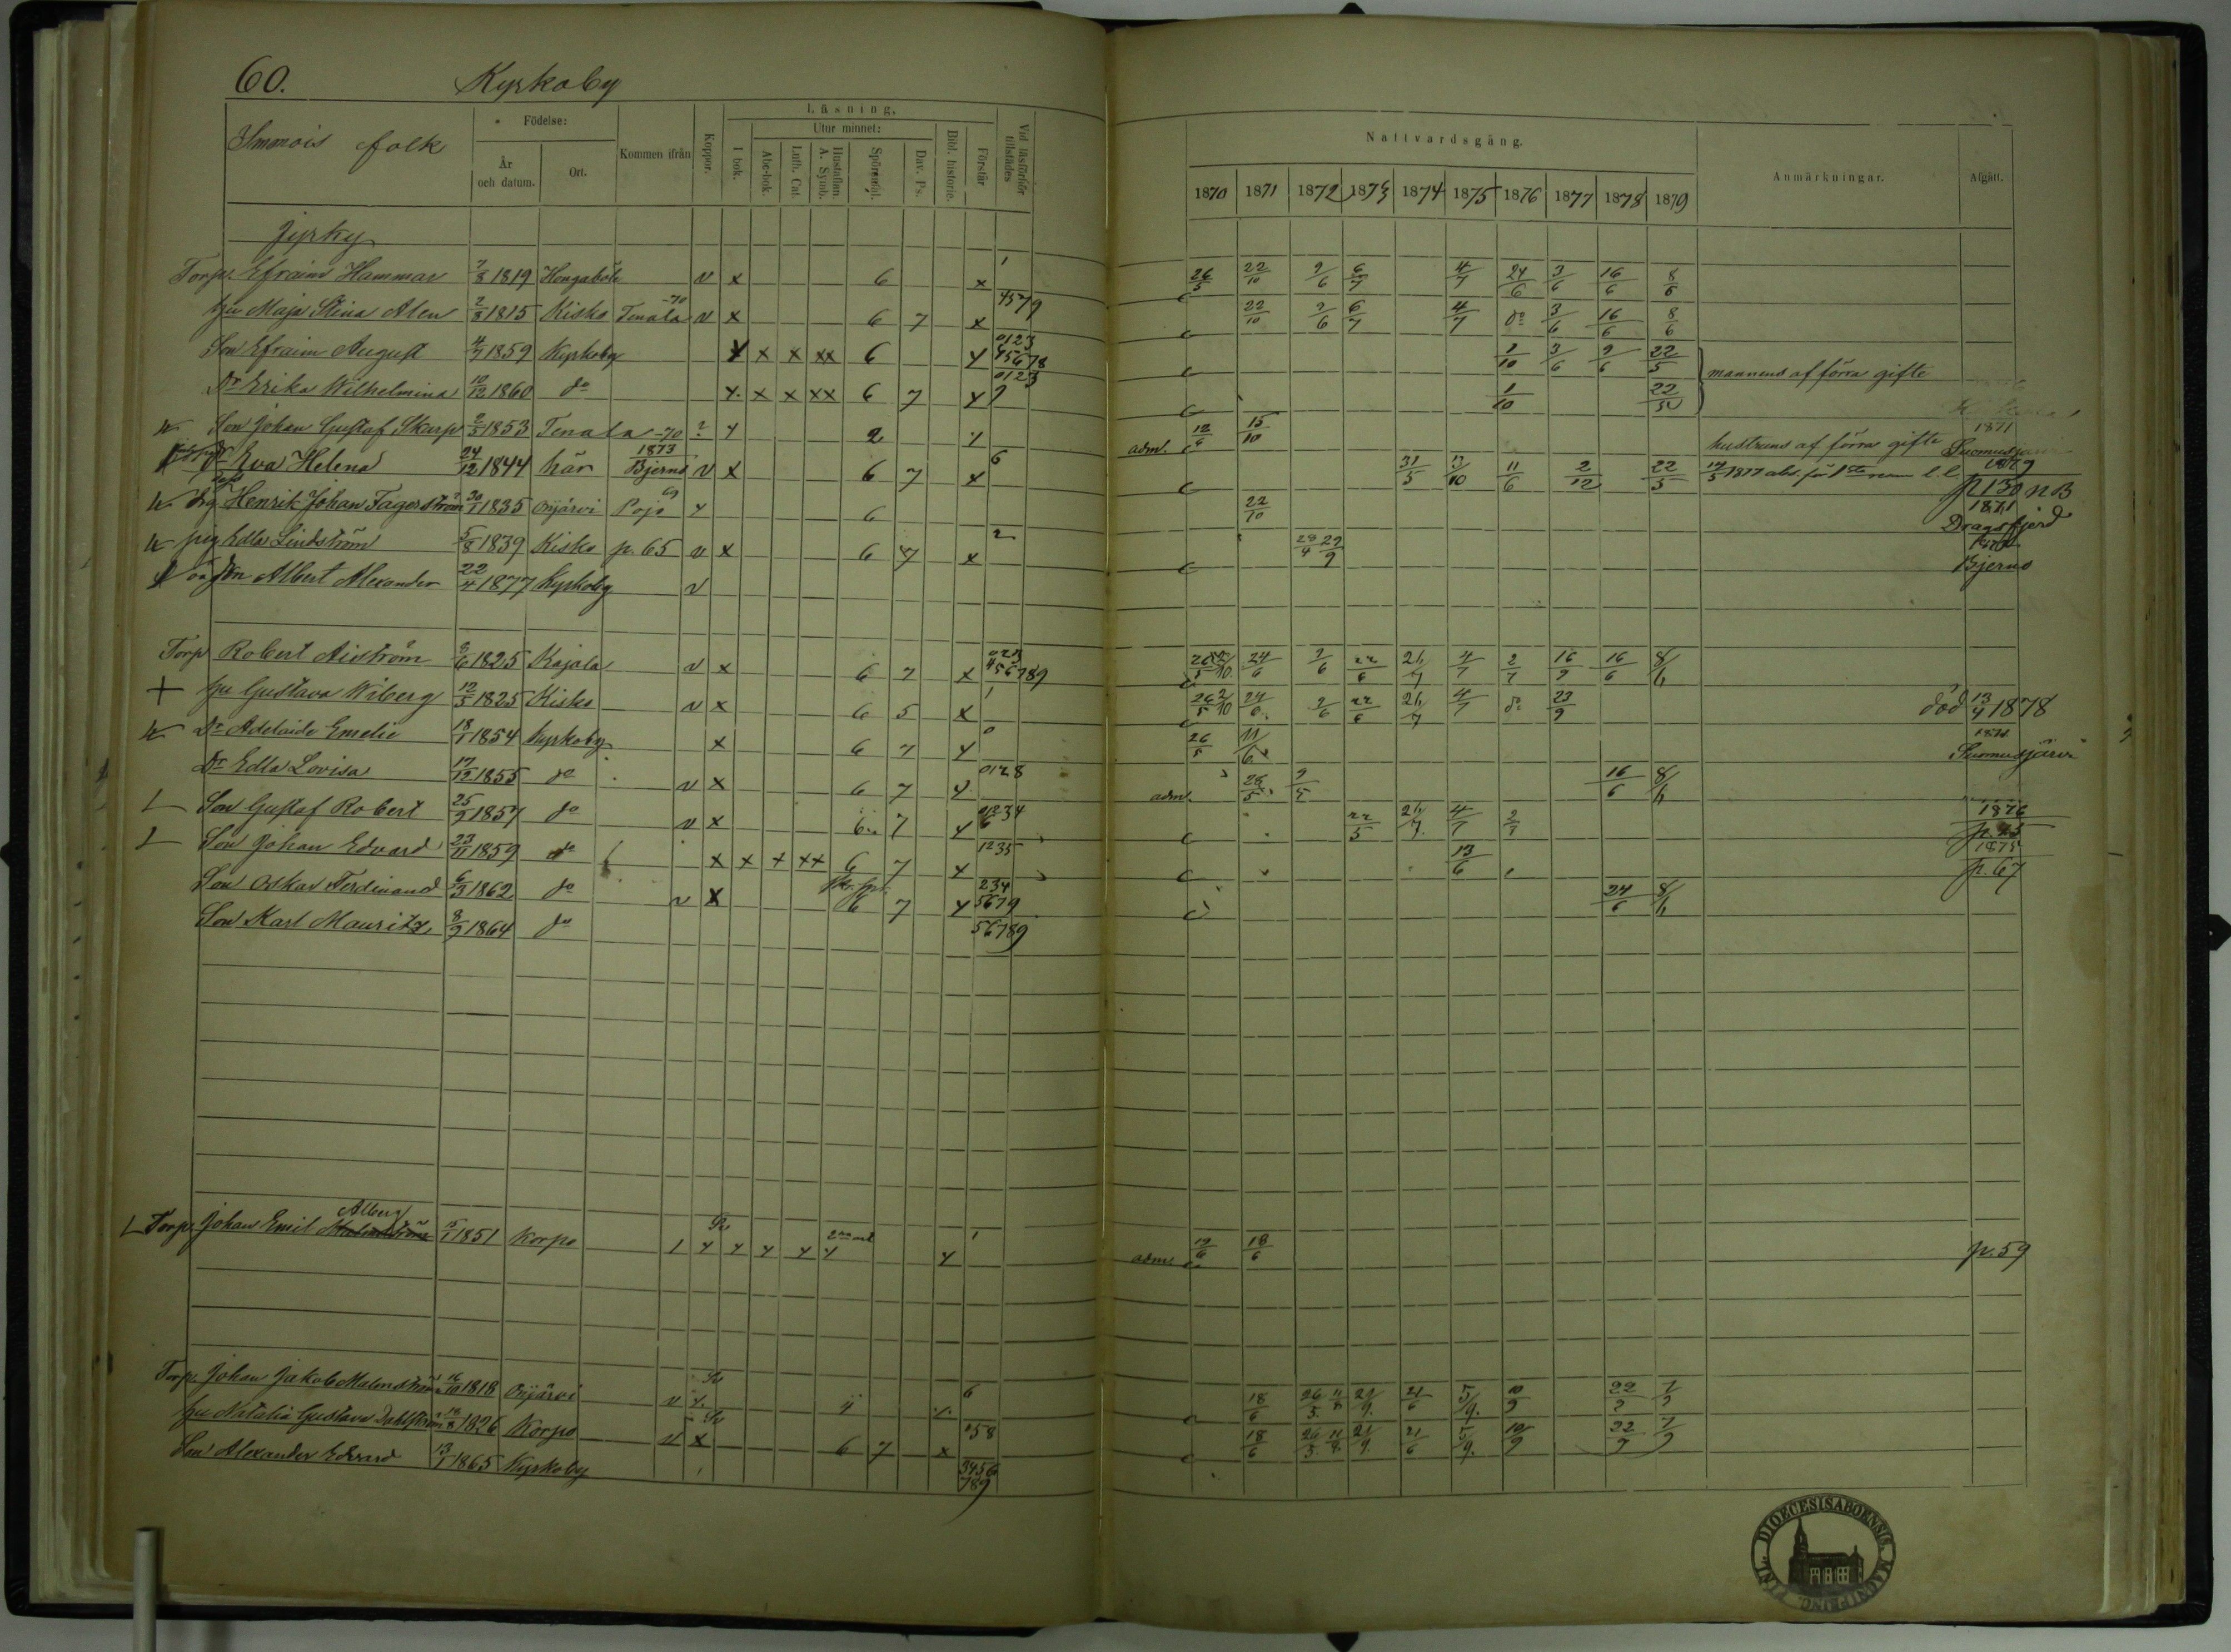 60. Kyrkoby
Immois folk
Födelse:
År och datum.
Ort.
Kommen ifrån
Koppor.
Läsning.
I bok.
Utur minnet:
Abc-bok.
Luth. Cat.
Hustaflan. A. Symb.
Spörsmål.
Dav. Ps.
Bibl. historie.
Förstår
Vid läsförhör tillstädes
Nattvardsgång.
1870 1871 1872 1873 1874 1875 1876 1877 1878 1879
Anmärkningar.
Afgått.
Jyrky
Torp. Efraim Hammar 7/8 1819 Hongaböle v x 6 x 1 26/5 22/10 2/6 6/7 4/7 24/6 3/6 16/6 8/6
hu Maja Stina Alen 2/3 1815 Kisko Tenala -70 v x 6 7 x 4579 22/10 2/6 6/7 4/7 do 3/6 16/6 8/6
Son Efraim August 4/7 1859 Kyrkoby x x x xx 6 x 0123 45678 1/10 3/6 9/6 22/5
Dr Erika Wilhelmina 10/12 1860 do x x x xx 6 7 x 0123 9 1/10 22/5 mannens af förra gifte
Son Johan Gustaf Skarp 2/5 1853 Tenala -70 ? x 2 x adm. 12/6 15/10 hustruns af förra gifte 1871 Suomusjärvi
Dr Eva Helena 24/12 1844 här 1873 Bjerno v x 6 7 x 6 31/5 3/10 11/6 2/12 22/5 1879 p 130 NB
drg Henrik Johan Fagerström 30/1 1835 Orijärvi Pojo 69 x 6 22/10 1871 Dragsfjerd
pig Edla Lindström 5/8 1839 Kisko p. 65 v x 6 7 x 2 28/4 29/9 Bjerno
oä son Albert Alexander 22/4 1877 Kyrkoby v
Torp Robert Aiström 2/6 1825 Kajala v x 6 7 x 456789 24/6 2/6 22/6 26/7 4/7 2/7 16/9 16/6 8/6
hu Gustava Wiberg 12/5 1825 Kisko v x 6 5 x 1 24/6 2/6 22/6 26/7 4/7 do 23/9 död 13/4 1878
Dr Adelaide Emelie 18/1 1854 Kyrkoby x 6 7 x 0 26/5 11/6 Suomusjärvi
Dr Edla Lovisa 17/12 1855 do v x 6 7 x 0128 adm. 26/5 2/5 16/6 8/6
Son Gustaf Robert 25/9 1857 do v x 6 7 x 01234 6 22/5 26/7 4/7 2/7 1876
Son Johan Edvard 23/11 1859 do x x x xx 6 7 x 1235 13/6 1875 p. 67
Son Oskar Ferdinand 6/3 1862 do v x 6 7 x 234 5679 24/6 8/6
Son Karl Mauritz 8/9 1864 do 56789
Torp. Johan Emil Alberg 5/1 1851 Korpo 1 x x x x x x 1 adm. 12/6 18/6 p. 59
Torp. Johan Jakob Malmström 16/10 1818 Orijärvi v x 4 x 6 18/6 26/5 11/8 21/9 21/6 5/9 10/9 22/9 7/9
hu Natalia Gustava Dahlström 12/8 1826 Korpo v x 6 7 x 058 18/6 26/5 11/8 21/9 21/6 5/9 10/9 22/9 7/9
Son Alexander Edvard 13/1 1865 Kyrkoby 3456 789
FINL. DIOECESIS ABOENSIS. MAGNI PRINC.